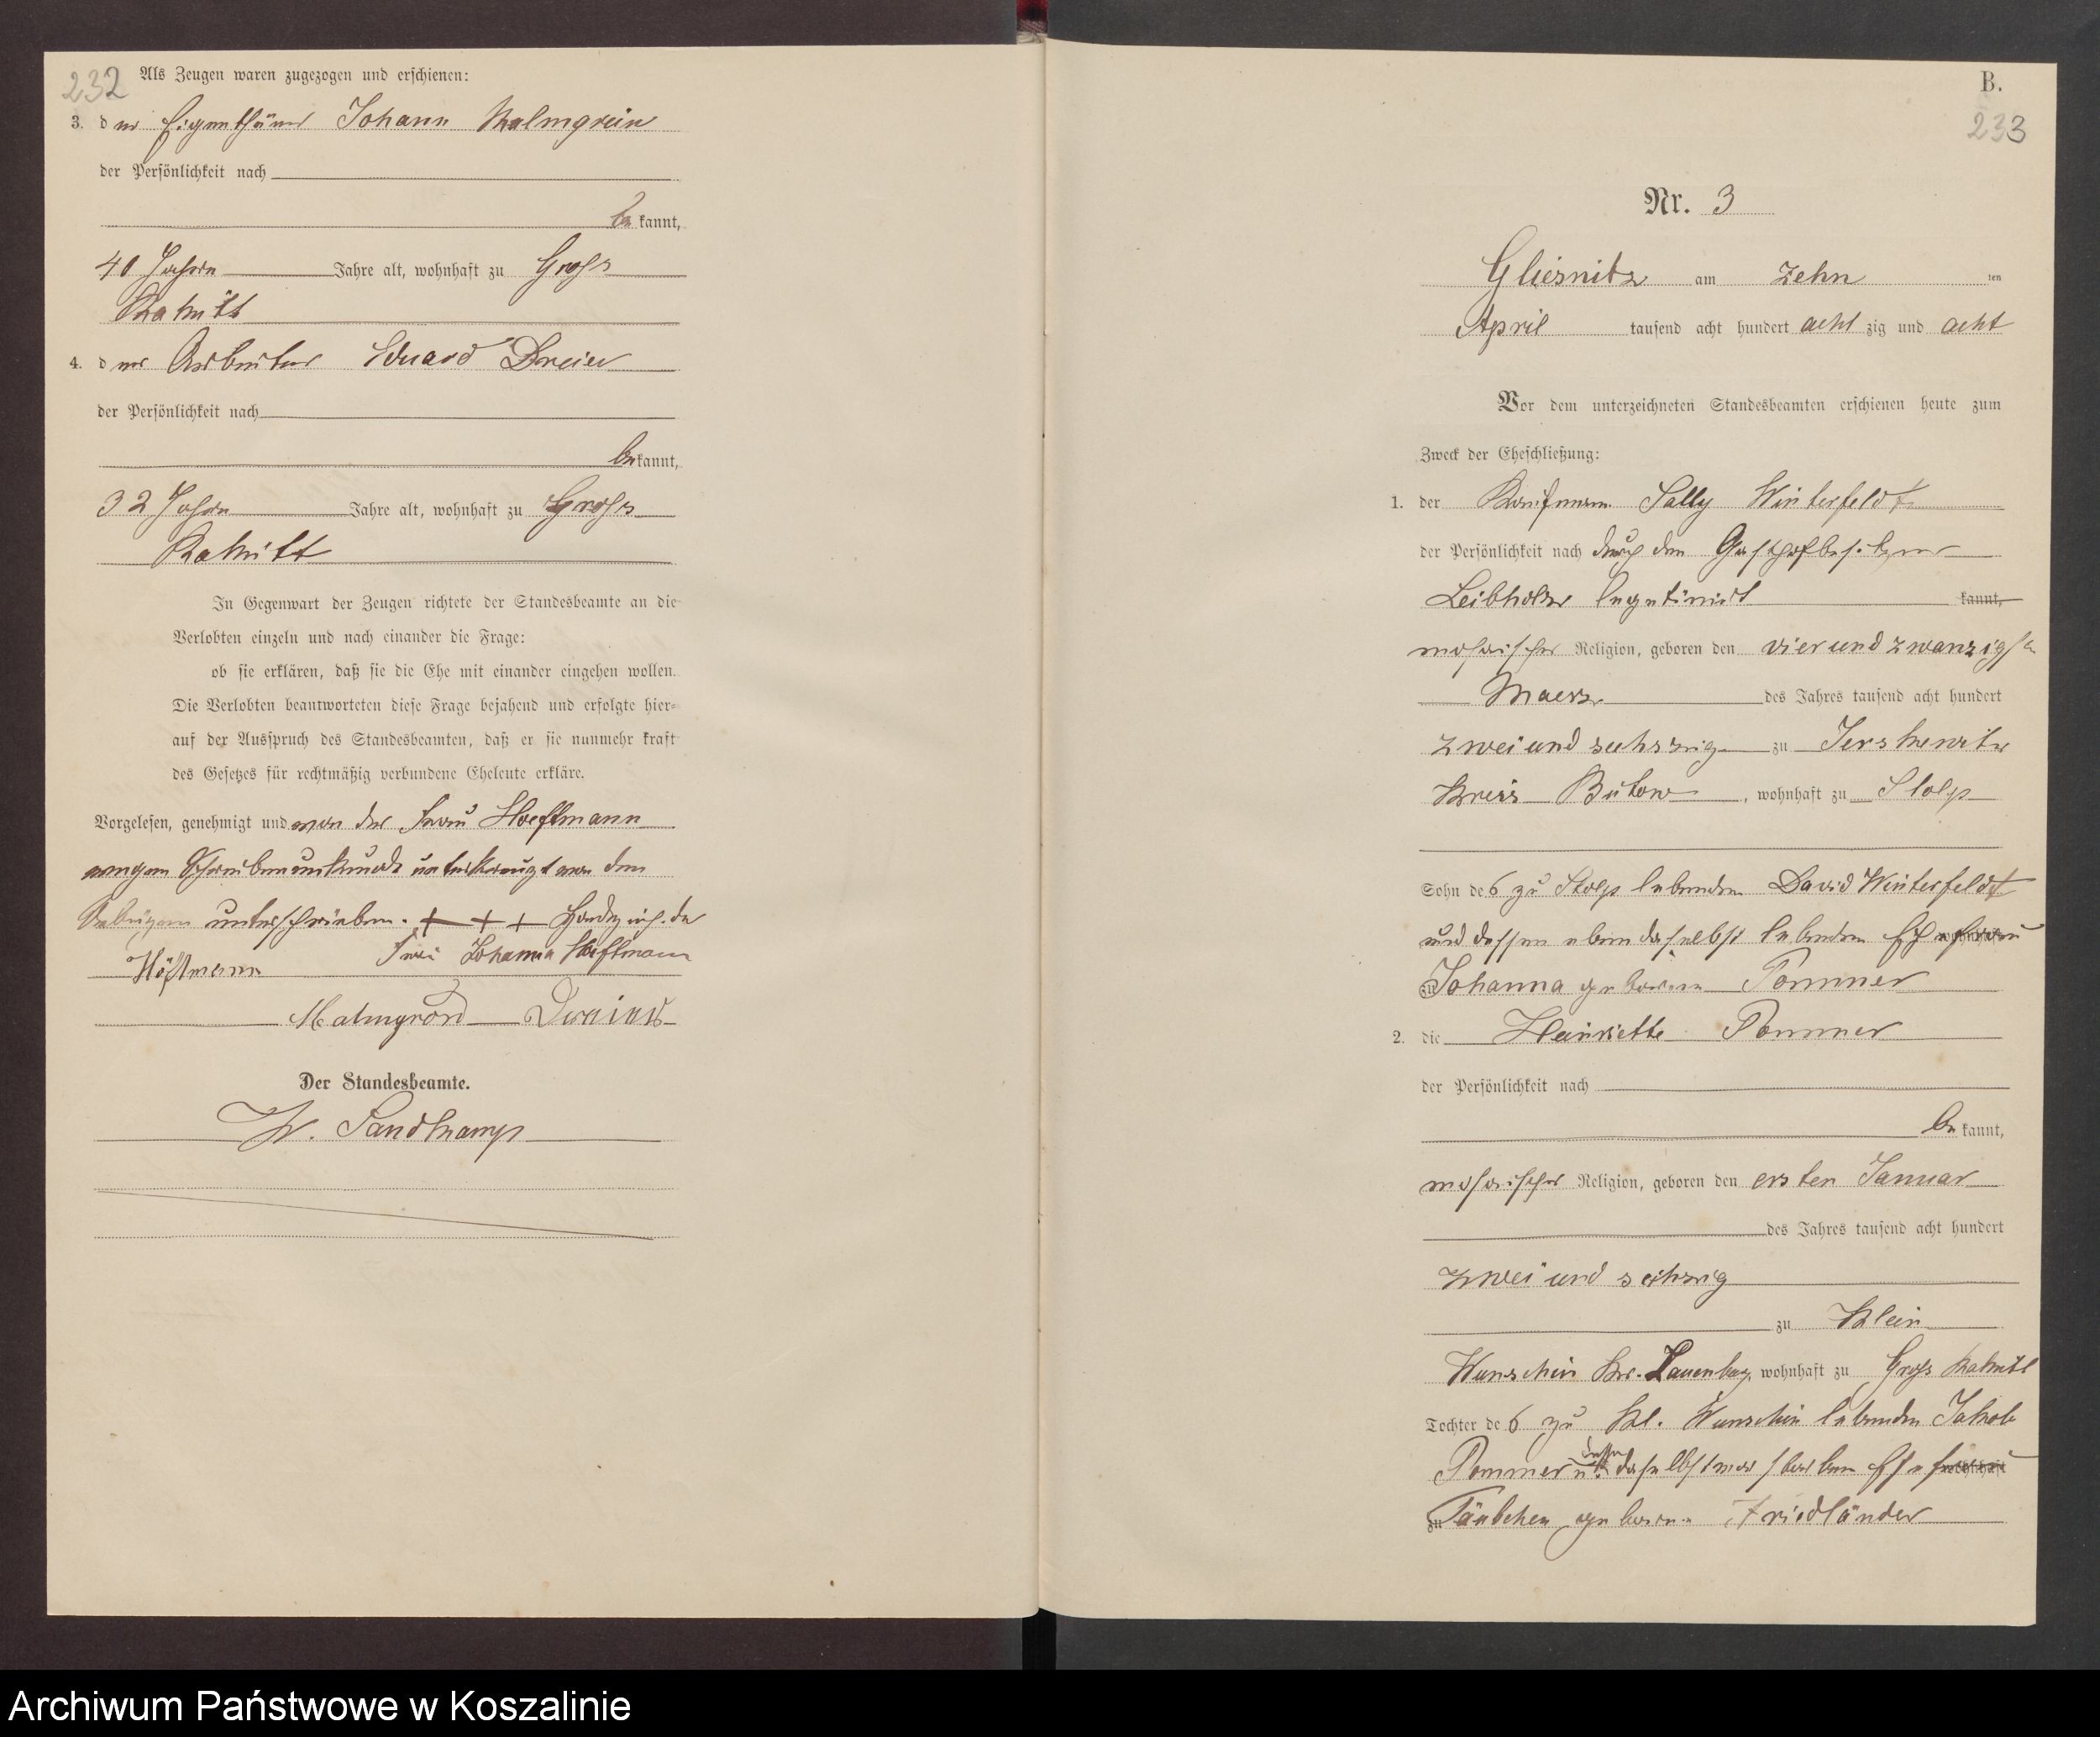 232
Als Zeugen waren zugezogen und erschienen:
3. der Eigenthümer Johann Malmgrein
der Persönlichkeit nach
bekannt,
40 Jahre Jahre alt, wohnhaft zu Gross
Rakitt
4. der Arbeiter Eduard Dreier
der Persönlichkeit nach
bekannt,
32 Jahre Jahre alt, wohnhaft zu Gross
Rakitt
In Gegenwart der Zeugen richtete der Standesbeamte an die
Verlobten einzeln und nach einander die Frage:
ob sie erklären, daß sie die Ehe mit einander eingehen wollen.
Die Verlobten beantworteten diese Frage bejahend und erfolgte hier-
auf der Ausspruch des Standesbeamten, daß er sie nunmehr kraft
des Gesetzes für rechtmäßig verbundene Eheleute erkläre.
Vorgelesen, genehmigt und von der Frau Hoeftmann
wegen Schreibensunkunde unterkreuzt von den
Uebrigen unterschrieben. + + + Handzeich. der
Höftmann Frau Johanna Höftmann
Der Standesbeamte.
W. Sandkamp
B.
233
Nr. 3
Gliesnitz am zehn ten
April tausend acht hundert acht zig und acht
Vor dem unterzeichneten Standesbeamten erschienen heute zum
Zweck der Eheschließung:
1. der Kaufmann Sally Winterfeldt
der Persönlichkeit nach durch den Gasthofbesitzer
Leibholz legitimirt kannt,
mosaischer Religion, geboren den vier und zwanzigsten
Maerz des Jahres tausend acht hundert
zwei und sechszig zu Jerskewitz
Kreis Bütow, wohnhaft zu Stolp
Sohn des zu Stolp lebenden David Winterfeldt
und dessen ebendaselbst lebenden Ehefrau
zu Johanna geborenen Pommer
2. die Henriette Pommer
der Persönlichkeit nach
bekannt,
mosaischer Religion, geboren den ersten Januar
des Jahres tausend acht hundert
zwei und sechzig
zu Klein
Wunschin Kr. Lauenburg, wohnhaft zu Gross Rakitt
Tochter des zu Kl. Wunschin lebenden Jakob
Pommer u. dessen daselbst verstorbenen Ehefrau
zu Täubchen geborene Friedländer
Archiwum Państwowe w Koszalinie